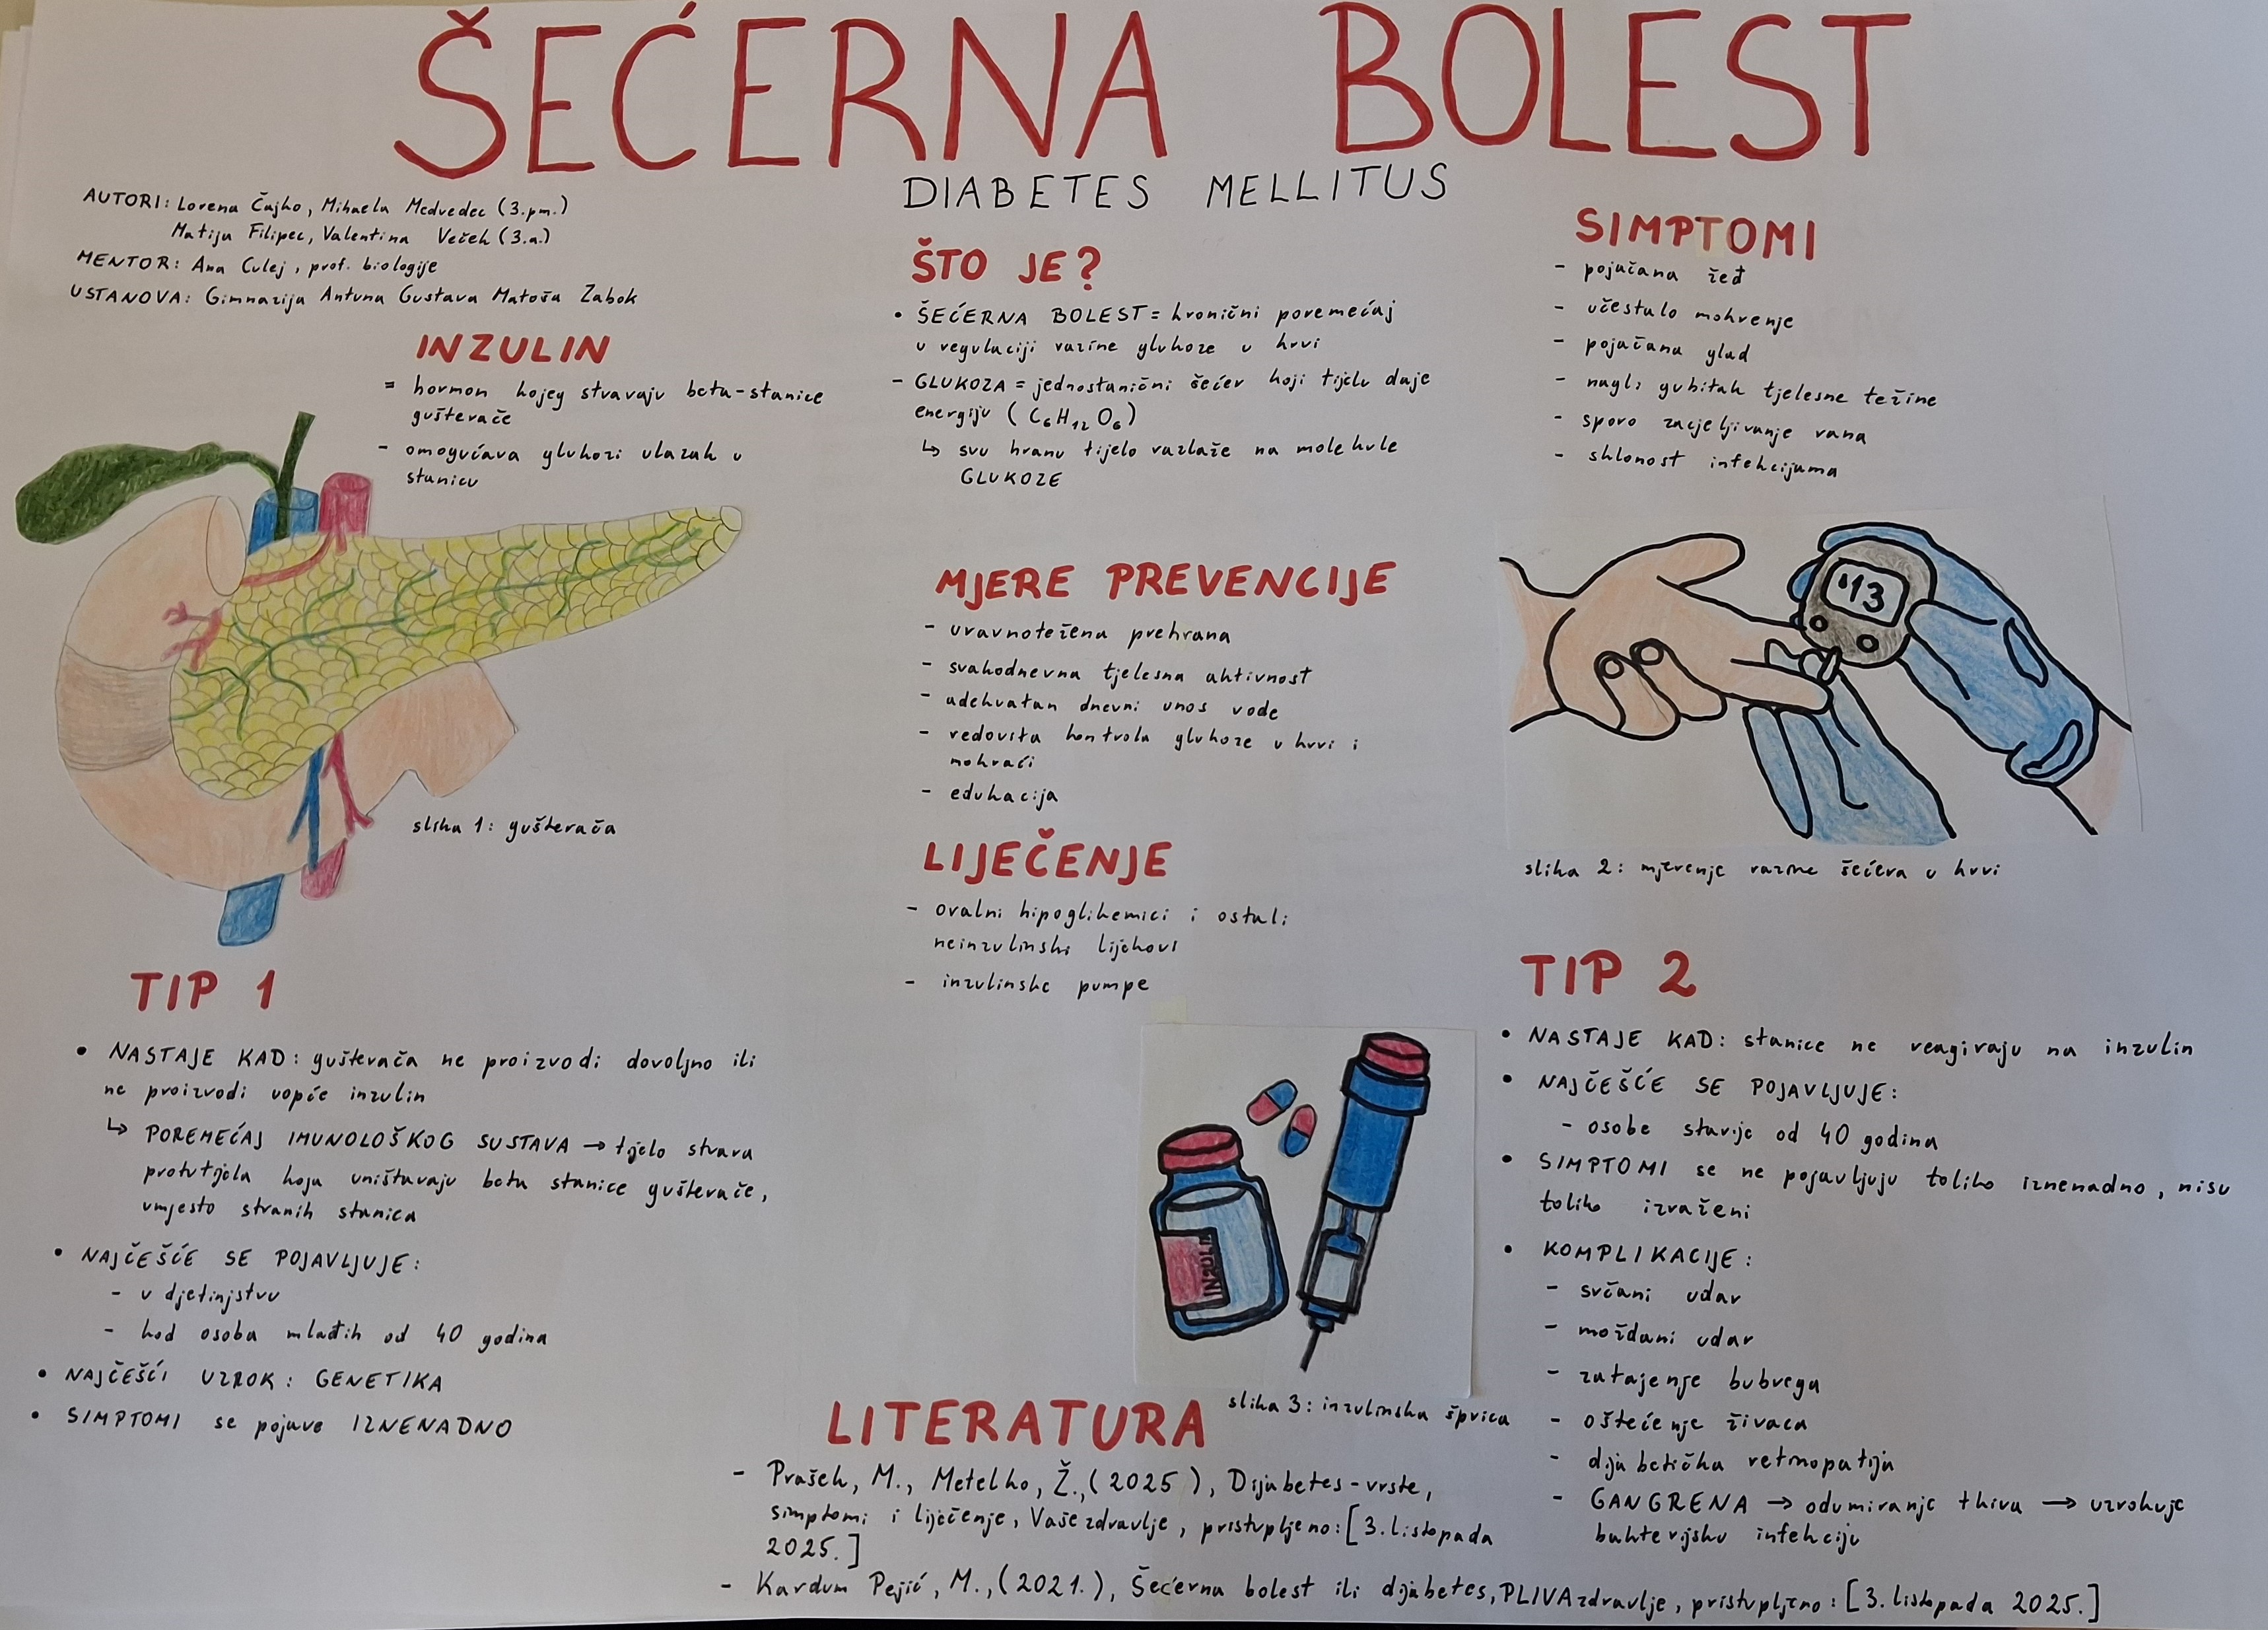 ŠEĆERNA BOLEST
DIABETES MELLITUS
AUTORI: Lorena Čajko, Mihaela Medvedec (3.pm.)
Matija Filipec, Valentina Veček (3.a.)
MENTOR: Ana Culej, prof. biologije
USTANOVA: Gimnazija Antuna Gustava Matoša Zabok
INZULIN
= hormon kojeg stvaraju beta-stanice
gušterače
- omogućava glukozi ulazak u
stanicu
slika 1: gušterača
TIP 1
• NASTAJE KAD: gušterača ne proizvodi dovoljno ili
ne proizvodi uopće inzulin
↳ POREMEĆAJ IMUNOLOŠKOG SUSTAVA → tijelo stvara
protutijela koja uništavaju beta stanice gušterače,
umjesto stranih stanica
• NAJČEŠĆE SE POJAVLJUJE:
- u djetinjstvu
- kod osoba mlađih od 40 godina
• NAJČEŠĆI UZROK: GENETIKA
• SIMPTOMI se pojave IZNENADNO
ŠTO JE?
• ŠEĆERNA BOLEST = kronični poremećaj
u regulaciji razine glukoze u krvi
- GLUKOZA = jednostanični šećer koji tijelu daje
energiju (C₆H₁₂O₆)
↳ svu hranu tijelo razlaže na molekule
GLUKOZE
MJERE PREVENCIJE
- uravnotežena prehrana
- svakodnevna tjelesna aktivnost
- adekvatan dnevni unos vode
- redovita kontrola glukoze u krvi i
mokraći
- edukacija
LIJEČENJE
- oralni hipoglikemici i ostali
neinzulinski lijekovi
- inzulinske pumpe
INZULIN
slika 3: inzulinska šprica
SIMPTOMI
- pojačana žeđ
- učestalo mokrenje
- pojačana glad
- nagli gubitak tjelesne težine
- sporo zacjeljivanje rana
- sklonost infekcijama
13
slika 2: mjerenje razine šećera u krvi
TIP 2
• NASTAJE KAD: stanice ne reagiraju na inzulin
• NAJČEŠĆE SE POJAVLJUJE:
- osobe starije od 40 godina
• SIMPTOMI se ne pojavljuju toliko iznenadno, nisu
toliko izraženi
• KOMPLIKACIJE:
- srčani udar
- moždani udar
- zatajenje bubrega
- oštećenje živaca
- dijabetička retinopatija
- GANGRENA → odumiranje tkiva → uzrokuje
bakterijsku infekciju
LITERATURA
- Prašek, M., Metelko, Ž., (2025), Dijabetes - vrste,
simptomi i liječenje, Vaše zdravlje, pristupljeno: [3. listopada
2025.]
- Kardum Pejić, M., (2021.), Šećerna bolest ili dijabetes, PLIVAzdravlje, pristupljeno: [3. listopada 2025.]